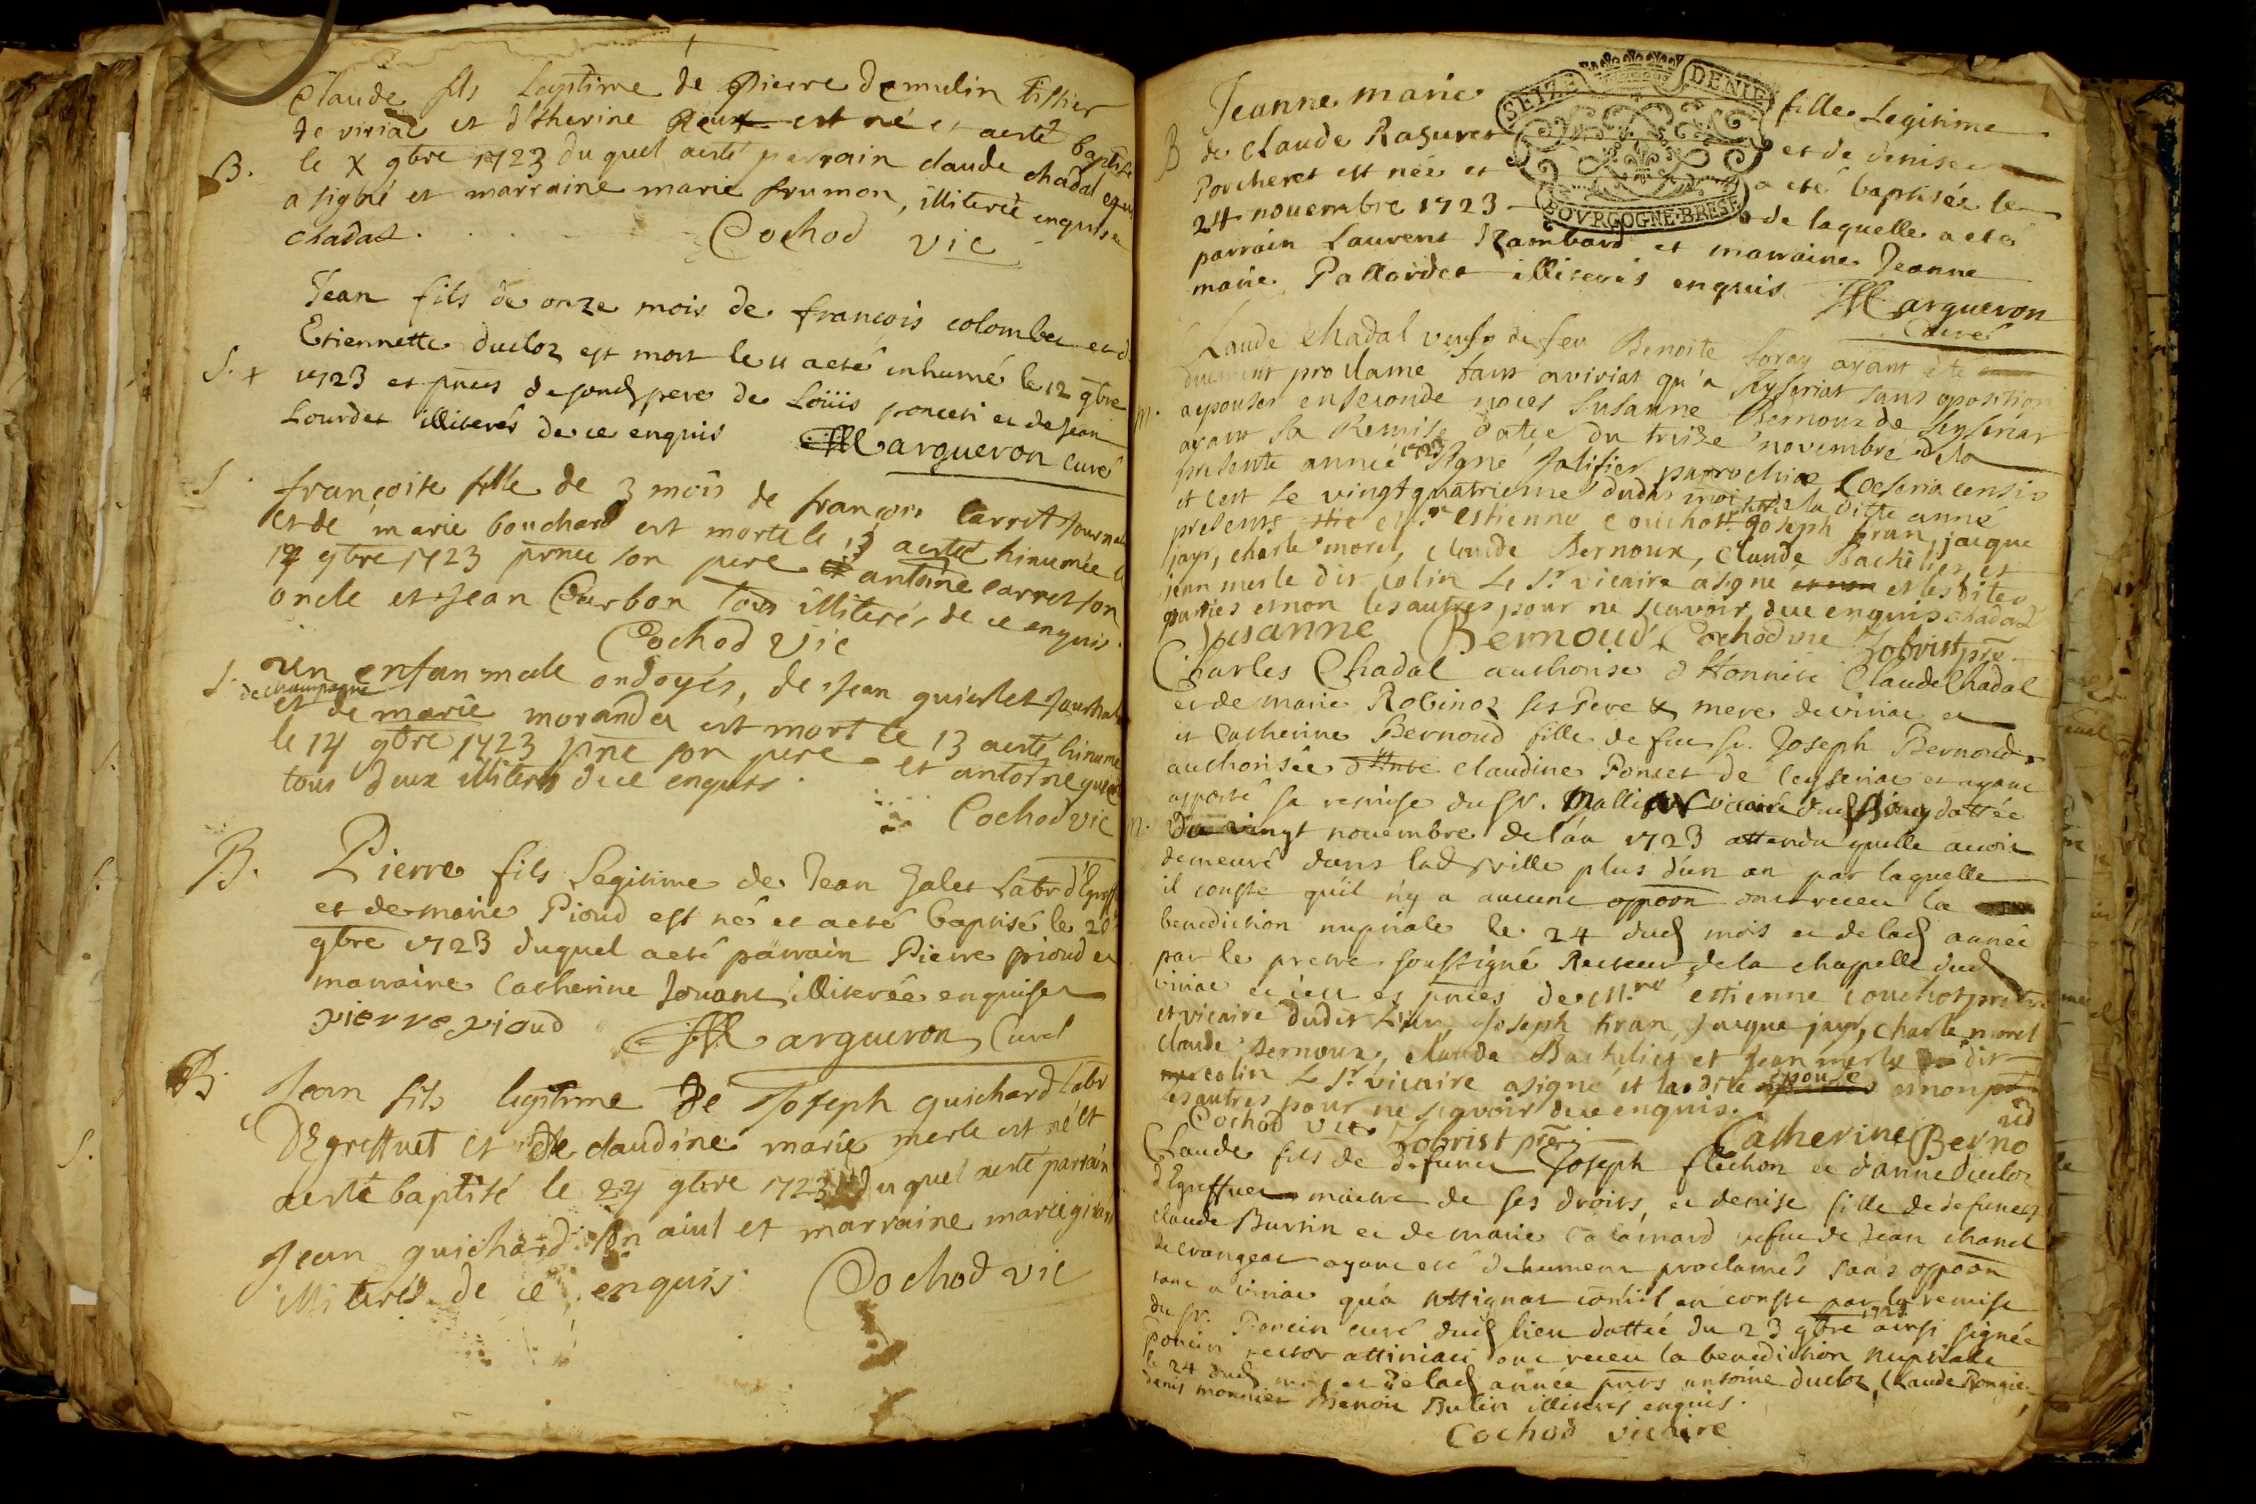 Claude fils Legitime de Pierre demulin tissier
de viriat et d'Etherine est né et aesté baptise
B. le X gbre 1723 du quel aesté parrain claude chadal
a signé et marraine marie frumon, illiterée enquise
chadal. Cochod vic
Jean fils de onze mois de françois colomber et d
Etiennette ducloz est mort le 11 aeté inhumé le 12 gbre
S. + 1723 es pnces de son pere de Loüis poncet et de Jean
Lourdet illiterés de ce enquis Margueron curé
S. françoise fille de 3 mois de françois Carret Journal
et de marie bouchard est morte le 13 aesté hinumée le
14 gbre 1723 pnce son pere antoine carret son
oncle et Jean Curbon tous illiterés de ce enquis.
Cochod Vic
S. un enfan male ondoyés, de Jean guierlet
de champagne
et de marie morandet est mort le 13 aesté hinumé
le 14 gbre 1723 pnce son pere et antoine
tous deux illiterés de ce enquis. Cochod vic
B. Pierre fils Legitime de Jean Galet Labr d'Egreff
et de marie Pioud est né et aeté baptisé le 20
gbre 1723 duquel aeté parrain Pierre pioud et
marraine Catherine Jouant illiterée enquise
pierre pioud Margueron Curé
B. Jean fils legitime de Joseph guichard labr
DEgreffuet et de claudine marie merle est né et
aesté baptisé le 24 gbre 1723 duquel aesté parrain
Jean guichard son aiul et marraine marie
illiterés de ce enquis. Cochod vic
SEIZE DENIE
BOVRGOGNE BRESE
Jeanne marie fille Legitime
B de Claude Rasuret et de denise
Porcheret est née et a eté baptisée le
24 novembre 1723 de laquelle a eté
parrain Laurent Rambard et marraine Jeanne
marie Pallardet illiterés enquis Margueron
Curé
Claude Chadal veuf de feu Benoite foray ayant été
duement proclamé tant a viriat qu'a seyseriat sans oposition
m. a epouser en seconde noces Susanne Bernoux de seyseriat
ayant sa Remise datée du treize novembre de la
presente année 1723 signé parrochiae
et c'est le vingt quatrieme dudit mois et de la ditte anné
presents Mr estienne couchot Joseph fran, jacque
jayr, charle morel, claude Bernoux, claude Bachelier et
jean merle dit colin Le sr vicaire a signé et les dites
parties et non les autres pour ne scavoir de ce enquis chadal
Susanne Bernoud Cochod vic Zobrist ptre
Charles Chadal authorisé d'Honnête Claude Chadal
et de marie Robinoz ses Pere & mere de viriat et
et Catherine Bernoud fille de feu sr. Joseph Bernoud
authorisée claudine Poncet de Ceyseriat et ayant
apporté sa remise du sr. vicaire dud Bourg dattée
m. du vingt novembre de l'an 1723 attendu quelle avoit
demeuré dans lad ville plus d'un an par laquelle
il conste qu'il n'y a aucune oppoon ont receu la
benediction nuptiale le 24 dud mois et de lad année
par le pretre soussigné Recteur de la chappelle dud
viriat et ceu es pnces de Mre estienne couchot pretre
et vicaire dudit Lieu, Joseph fran, Jacque jayr, Charle morel
claude Bernoux, claude Bachelier et Jean merle dit
colin Le sr vicaire a signé et la dite epouse et non
les autres pour ne sçavoir de ce enquis.
Cochod vic Zobrist ptre Catherine Bernoud
Claude fils de defunct Joseph flechon et d'anne ducloz
d'Egreffuet maitre de ses droits, et denise fille de defunct
claude Burtin et de marie Calamard vefue de Jean chanel
de Crangeac ayant eté dehument proclamés sans oppoon
tant a viriat qu'a Attignat comme il en conste par la remise
du sr. Poncin curé dud lieu dattée du 23 gbre 1723 ainsi signée
Poncin rector attiniaci ont receu la benediction nuptiale
le 24 dud mois et de lad année pnts antoine ducloz, Claude Rongie
denis monnier Benoit Butin illiterés enquis.
Cochod vicaire